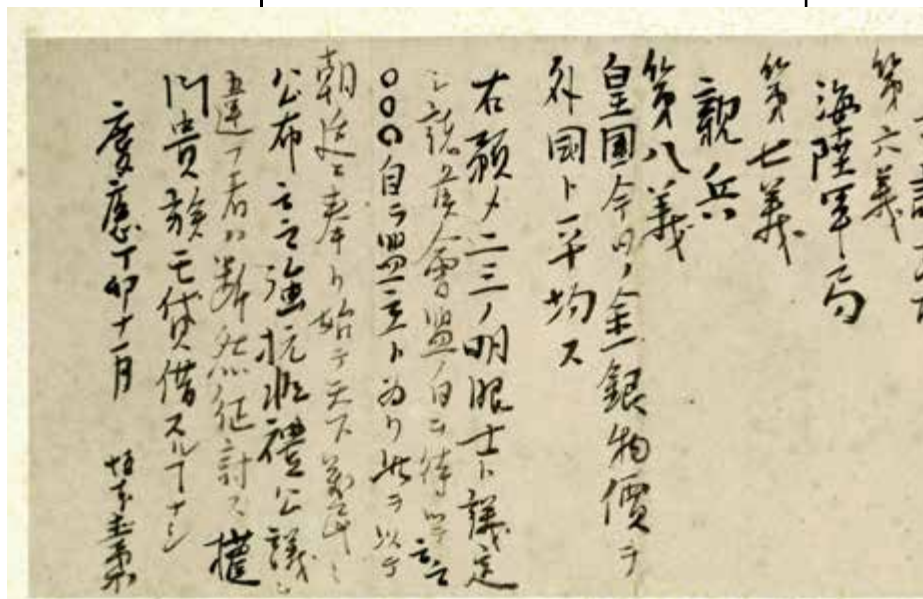 第六義
海陸軍局
第七義
親兵
第八義
皇國今日ノ金銀物價ヲ
外國ト平均ス
右預メ二三ノ明眼士ト議定
シ諸侯會盟ノ日ヲ待ツテ云云
○○○自ラ盟主ト為リ此ヲ以テ
朝廷ニ奉リ始テ天下萬民ニ
公布云云強抗非禮公議ニ
違フ者ハ断然征討ス權
門貴族モ貸借スルヿナシ
慶應丁卯十一月 坂本直柔